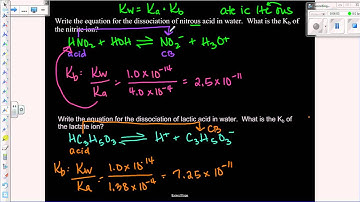 Kw = Ka · Kb
ate ic
Write the equation for the dissociation of nitrous acid in water. What is the Kb of
the nitrite ion?
HNO₂ + HOH ⇌ NO₂⁻ + H₃O⁺
acid CB
Kb: Kw/Ka = 1.0 × 10⁻¹⁴/4.0 × 10⁻⁴ = 2.5 × 10⁻¹¹
Write the equation for the dissociation of lactic acid in water. What is the Kb of
the lactate ion?
CB
HC₃H₅O₃ ⇌ H⁺ + C₃H₅O₃⁻
acid
Kb: Kw/Ka = 1.0 × 10⁻¹⁴/1.38 × 10⁻⁴ = 7.25 × 10⁻¹¹